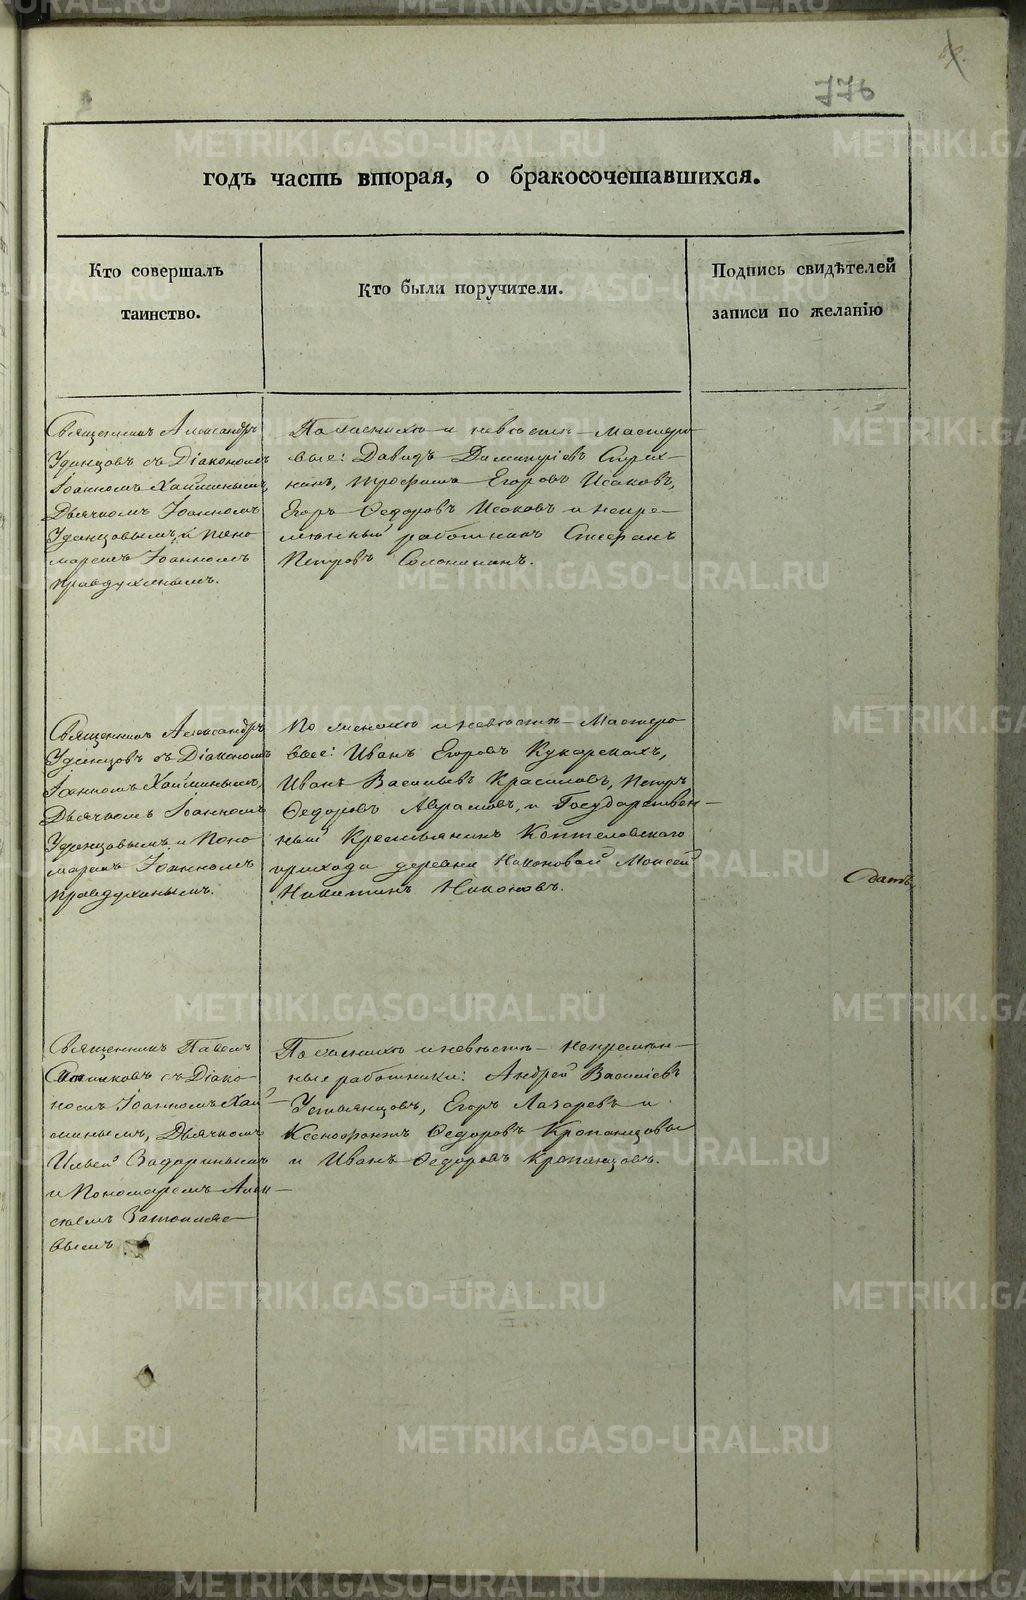 776
годъ часть вторая, о бракосочетавшихся.
Кто совершалъ
таинство.
Кто были поручители.
Подпись свидѣтелей
записи по желанію
Священникъ Александръ
Удинцовъ съ Діакономъ
Іоанномъ Хайминымъ,
Дьячкомъ Іоанномъ
Удинцовымъ и Поно
маремъ Іоанномъ
Правдухинымъ.
По женихѣ и невѣстѣ – Мастеро
вые: Давидъ
Егоровъ Исаковъ,
Егоръ Ѳедоровъ Исаковъ и непре–
мѣнный работникъ Стефанъ
Петровъ Солонинин.
Священникъ Александръ
Удинцовъ съ Діакономъ
Іоанномъ Хайминымъ,
Дьячкомъ Іоанномъ
Удинцовымъ и Поно
маремъ Іоанномъ
Правдухинымъ.
По женихѣ и невѣстѣ – Мастеро
вые: Иванъ Егоровъ
Иванъ Васильевъ Красиловъ, Петръ
Ѳедоровъ Абрамовъ, и Государствен–
ный Крестьянинъ Коптеловскаго
прихода деревни Никоновой Моисей
Никитинъ Никоновъ.
Священникъ Павелъ
съ Діако–
номъ Іоанномъ Хай–
минымъ, Дьячкомъ
Ильей Задоринымъ
и Пономаремъ Алек–
сѣемъ
вымъ
По женихѣ и невѣстѣ – непремѣн–
ные работники: Андрей Васильевъ
Устьянцовъ, Егоръ Лазаревъ и
Ксенофонтъ Ѳедоровъ Кропанцовы
и Иванъ Ѳедоровъ Кропанцовъ.
METRIKI.GASO-URAL.RU